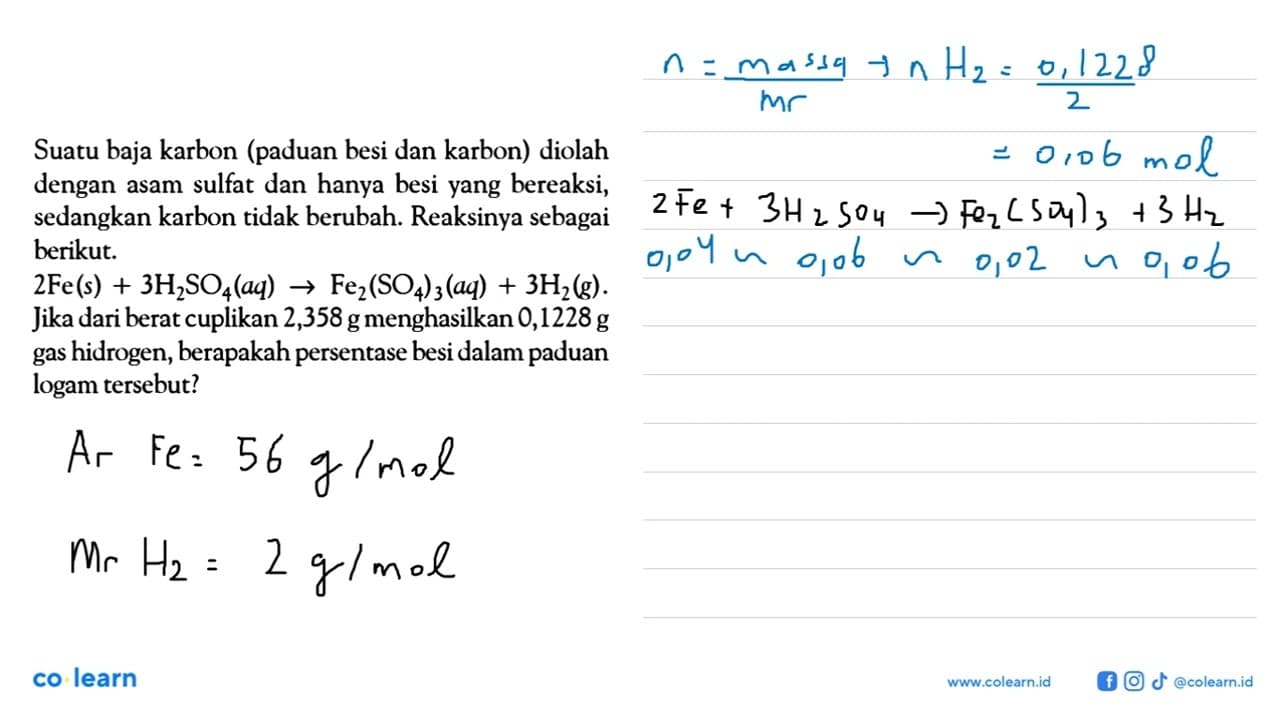 Suatu baja karbon (paduan besi dan karbon) diolah
dengan asam sulfat dan hanya besi yang bereaksi,
sedangkan karbon tidak berubah. Reaksinya sebagai
berikut.
2Fe(s) + 3H₂SO₄(aq) → Fe₂(SO₄)₃(aq) + 3H₂(g).
Jika dari berat cuplikan 2,358 g menghasilkan 0,1228 g
gas hidrogen, berapakah persentase besi dalam paduan
logam tersebut?
Ar Fe = 56 g/mol
Mr H₂ = 2 g/mol
n = massa/Mr → n H₂ = 0,1228/2
= 0,06 mol
2Fe + 3H₂SO₄ → Fe₂(SO₄)₃ + 3H₂
0,04 ~ 0,06 ~ 0,02 ~ 0,06
co learn
www.colearn.id
@colearn.id